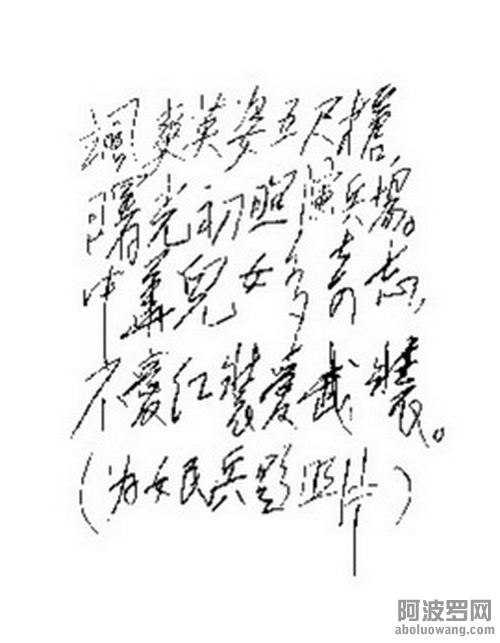 颯爽英姿五尺槍,
曙光初照演兵場。
中華兒女多奇志,
不愛红裝愛武裝。
(为女民兵题照片)
阿波罗网
aboluowang.com